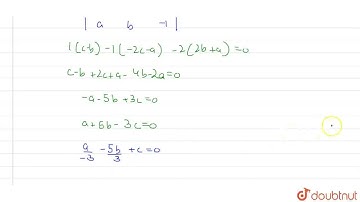 | a b -1 |
1(c-b) -1(-2c-a) -2(2b+a) = 0
c-b +2c+a - 4b-2a=0
-a-5b+3c=0
a+5b-3c=0
a/-3 -5b/3 +c=0
doubtnut